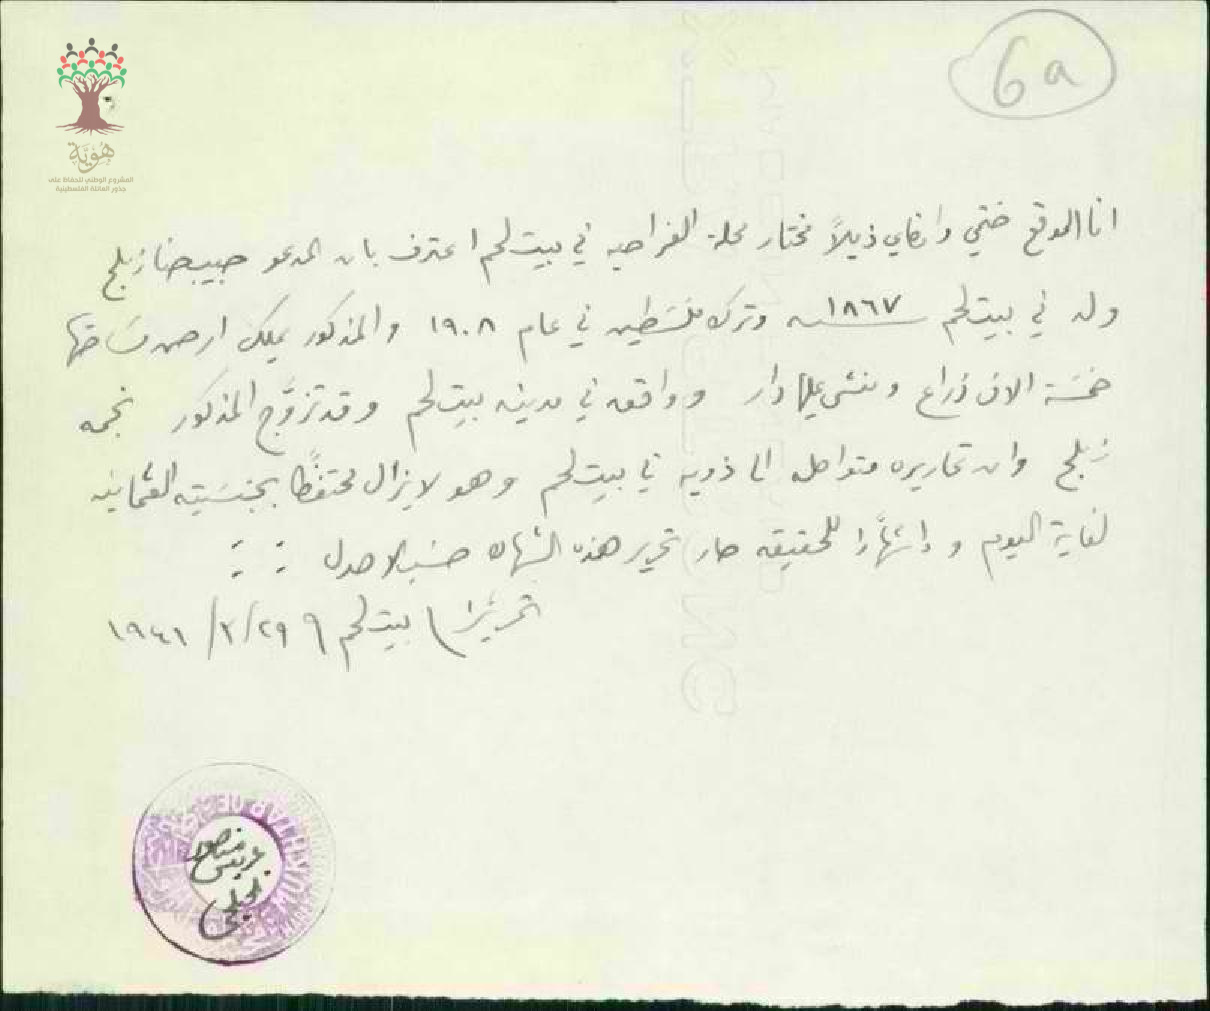 6a
هُوِيَّة
المشروع الوطني للحفاظ على
جذور العائلة الفلسطينية
انا الموقع ختمي وامضاي ذيلاً مختار محلة الفراحيه في بيت لحم اعترف بان المدعو حبيب حنا زبلح
ولد في بيت لحم ١٨٦٧ وترك فلسَطين في عام ١٩٠٨ والمذكور يملك ارض مسَاحتها
خمسَة الاف ذراع ومنشى عليها دار وواقعه في مدينه بيت لحم وقد تزوَّج المذكور نجمه
زبلح وان تحاريره متواصله الى ذويه في بيت لحم وهو لا يزال محتفظًا بجنسَيته العثمانيه
لغاية اليوم و إشهارًا للحقيقه صار تحرير هذه الشهاده حسَب الاصول
تحريرًا) بيت لحم ٢٩/٣/١٩٤١
منصور